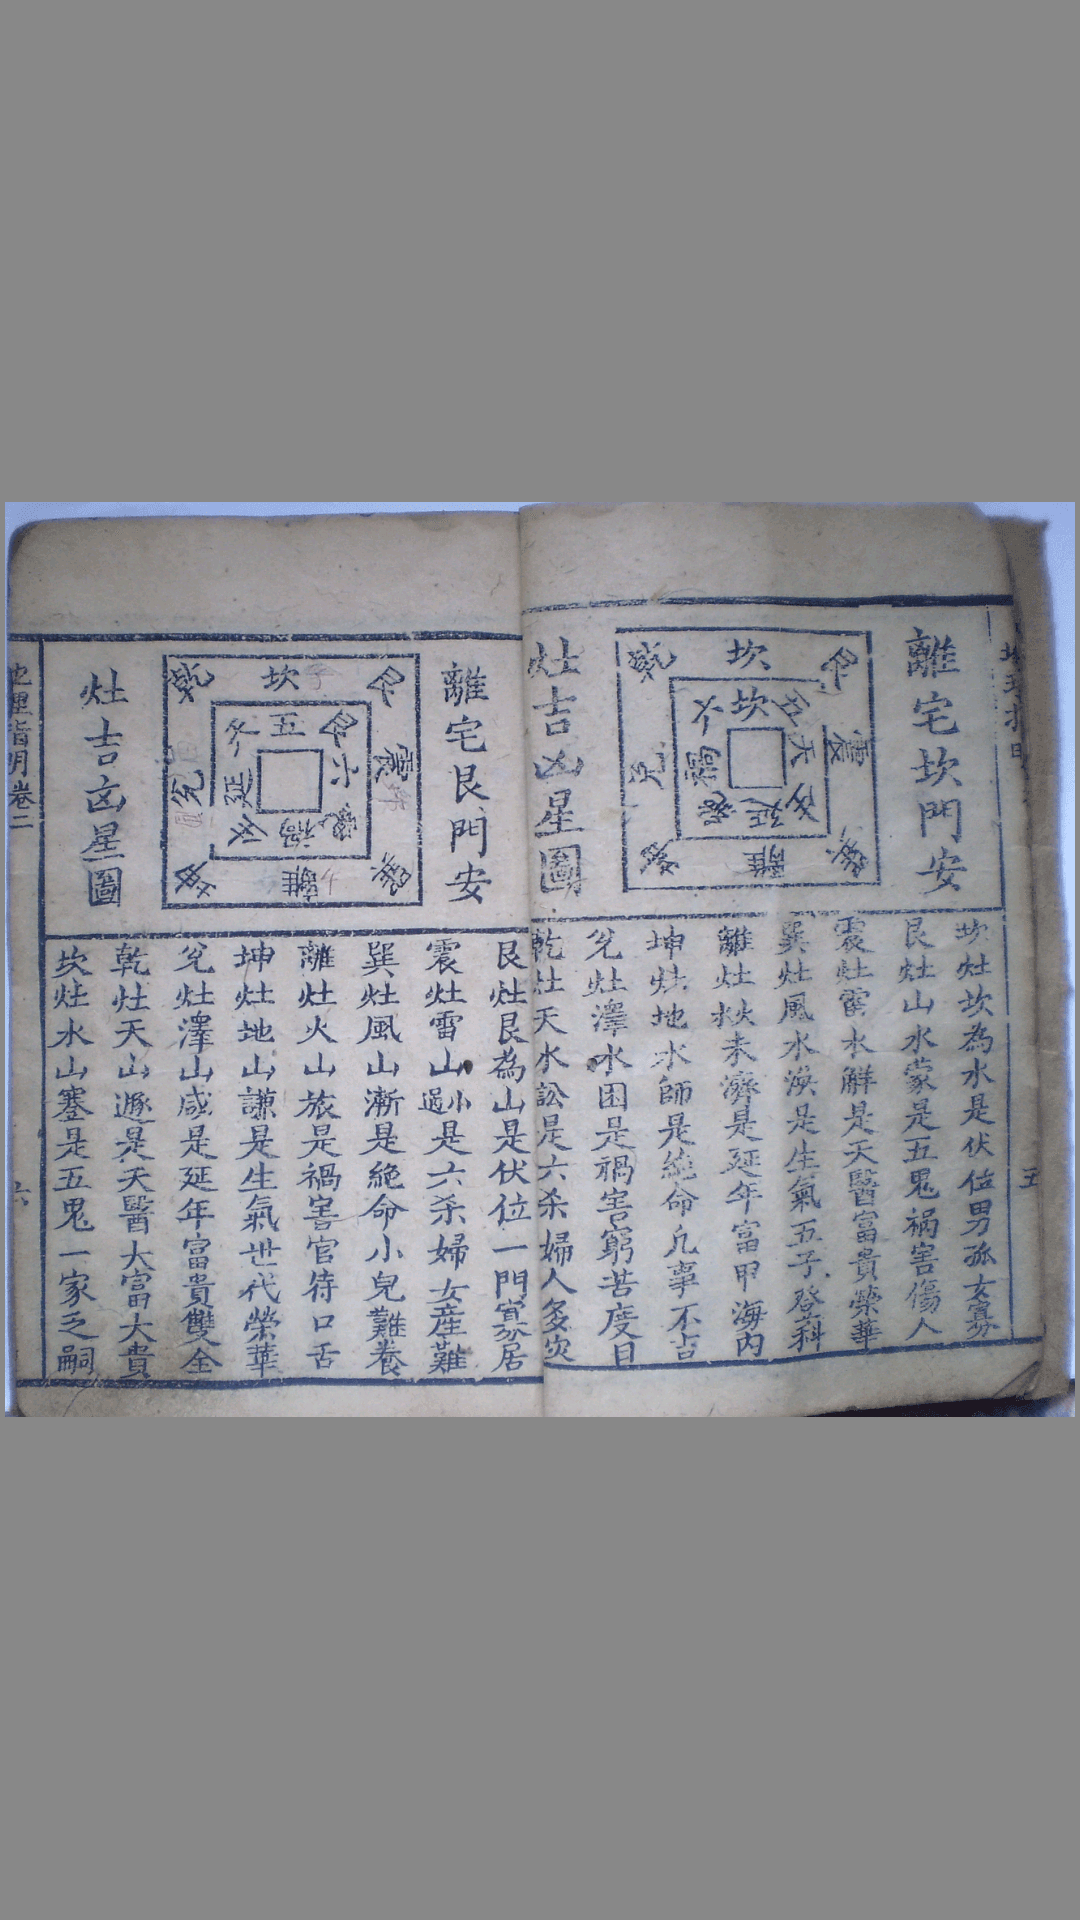 離宅坎門安
灶吉凶星圖
坎
艮
震
巽
離
坤
兌
乾
坎
五
天
生
延
絕
禍
六
坎灶坎為水是伏位男孤女寡
艮灶山水蒙是五鬼禍害傷人
震灶雷水解是天醫富貴榮華
巽灶風水渙是生氣五子登科
離灶火水未濟是延年富甲海内
坤灶地水師是絶命凡事不吉
兌灶澤水困是禍害窮苦度日
乾灶天水訟是六杀婦人多灾
五
離宅艮門安
灶吉凶星圖
坎
艮
震
巽
離
坤
兌
乾
五
艮
六
禍
生
延
天
艮灶艮為山是伏位一門寡居
震灶雷山小過是六杀婦女産難
巽灶風山漸是絶命小兒難養
離灶火山旅是禍害官待口舌
坤灶地山謙是生氣世代榮華
兌灶澤山咸是延年富貴雙全
乾灶天山遯是天醫大富大貴
坎灶水山蹇是五鬼一家乏嗣
地理指明卷二
六